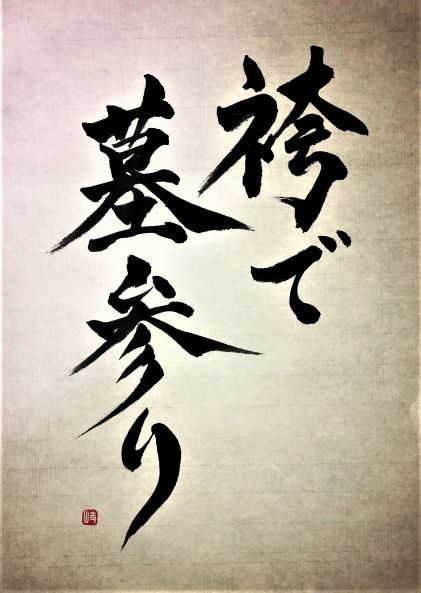 袴で
墓参り